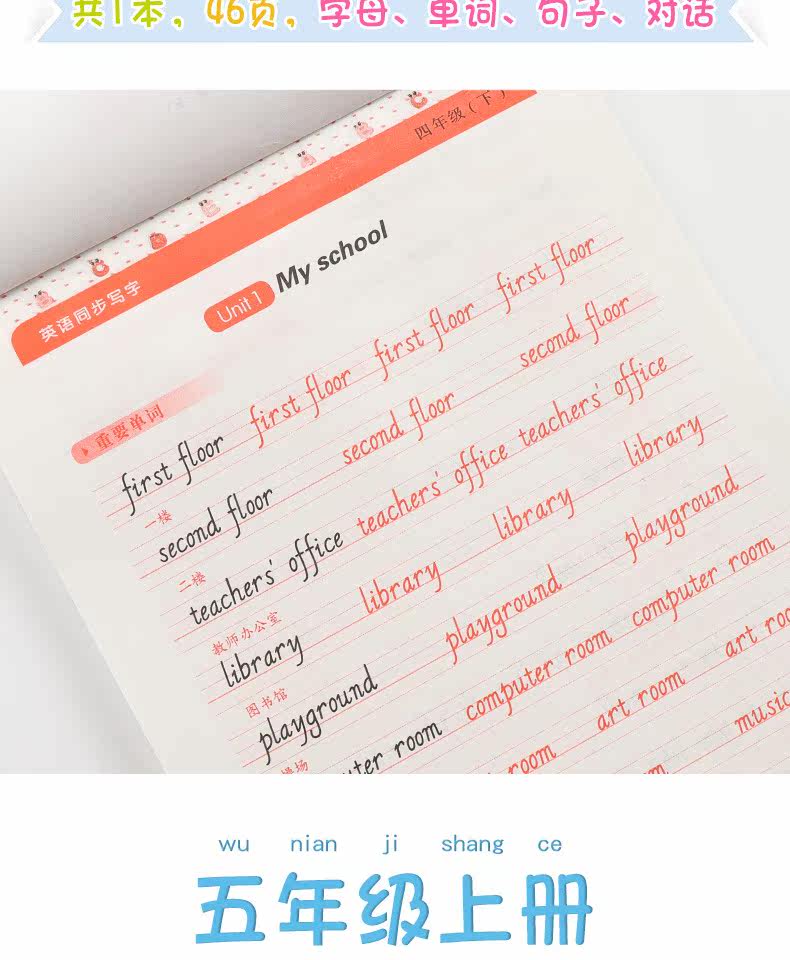 共1本，46页，字母、单词、句子、对话
四年级（下）
英语同步写字
Unit 1 My school
重要单词
first floor first floor first floor first floor
一楼
second floor second floor second floor
二楼
teachers' office teachers' office teachers' office
教师办公室
library library library library
图书馆
playground playground playground
操场
computer room computer room
art room art
room
music
wu nian ji shang ce
五年级上册